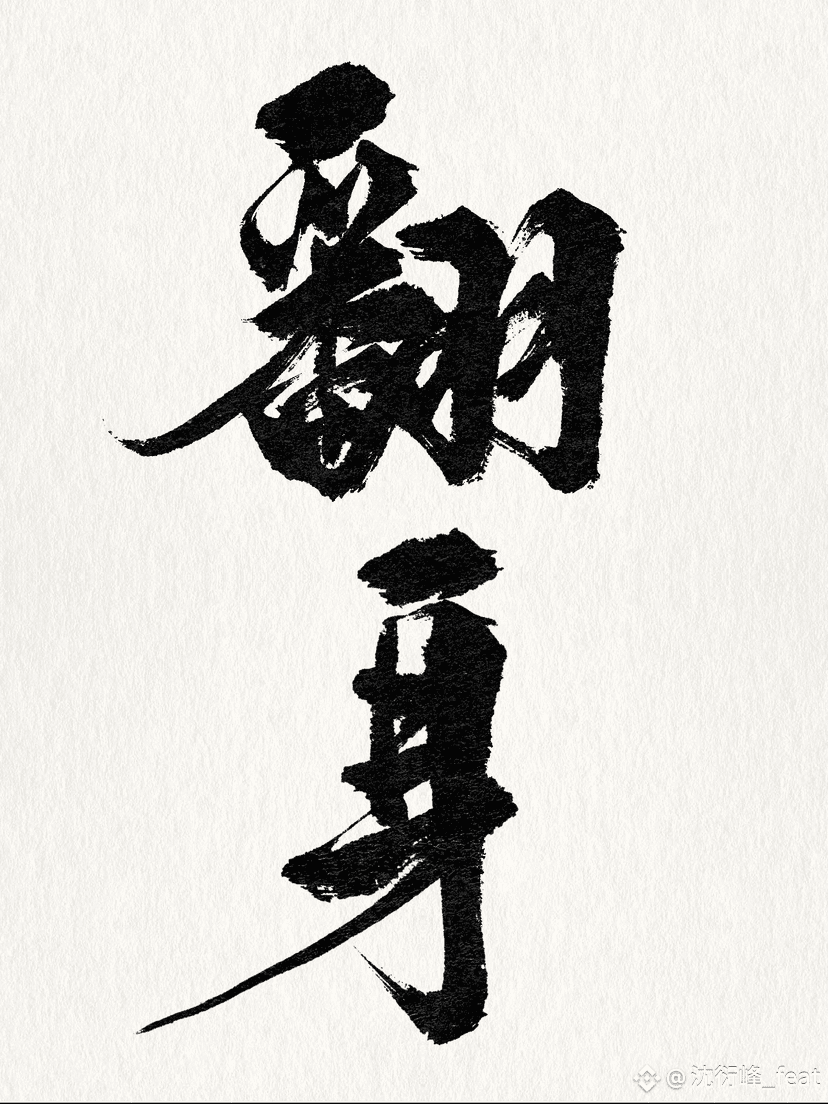 翻
身
@沈衍峰_feat